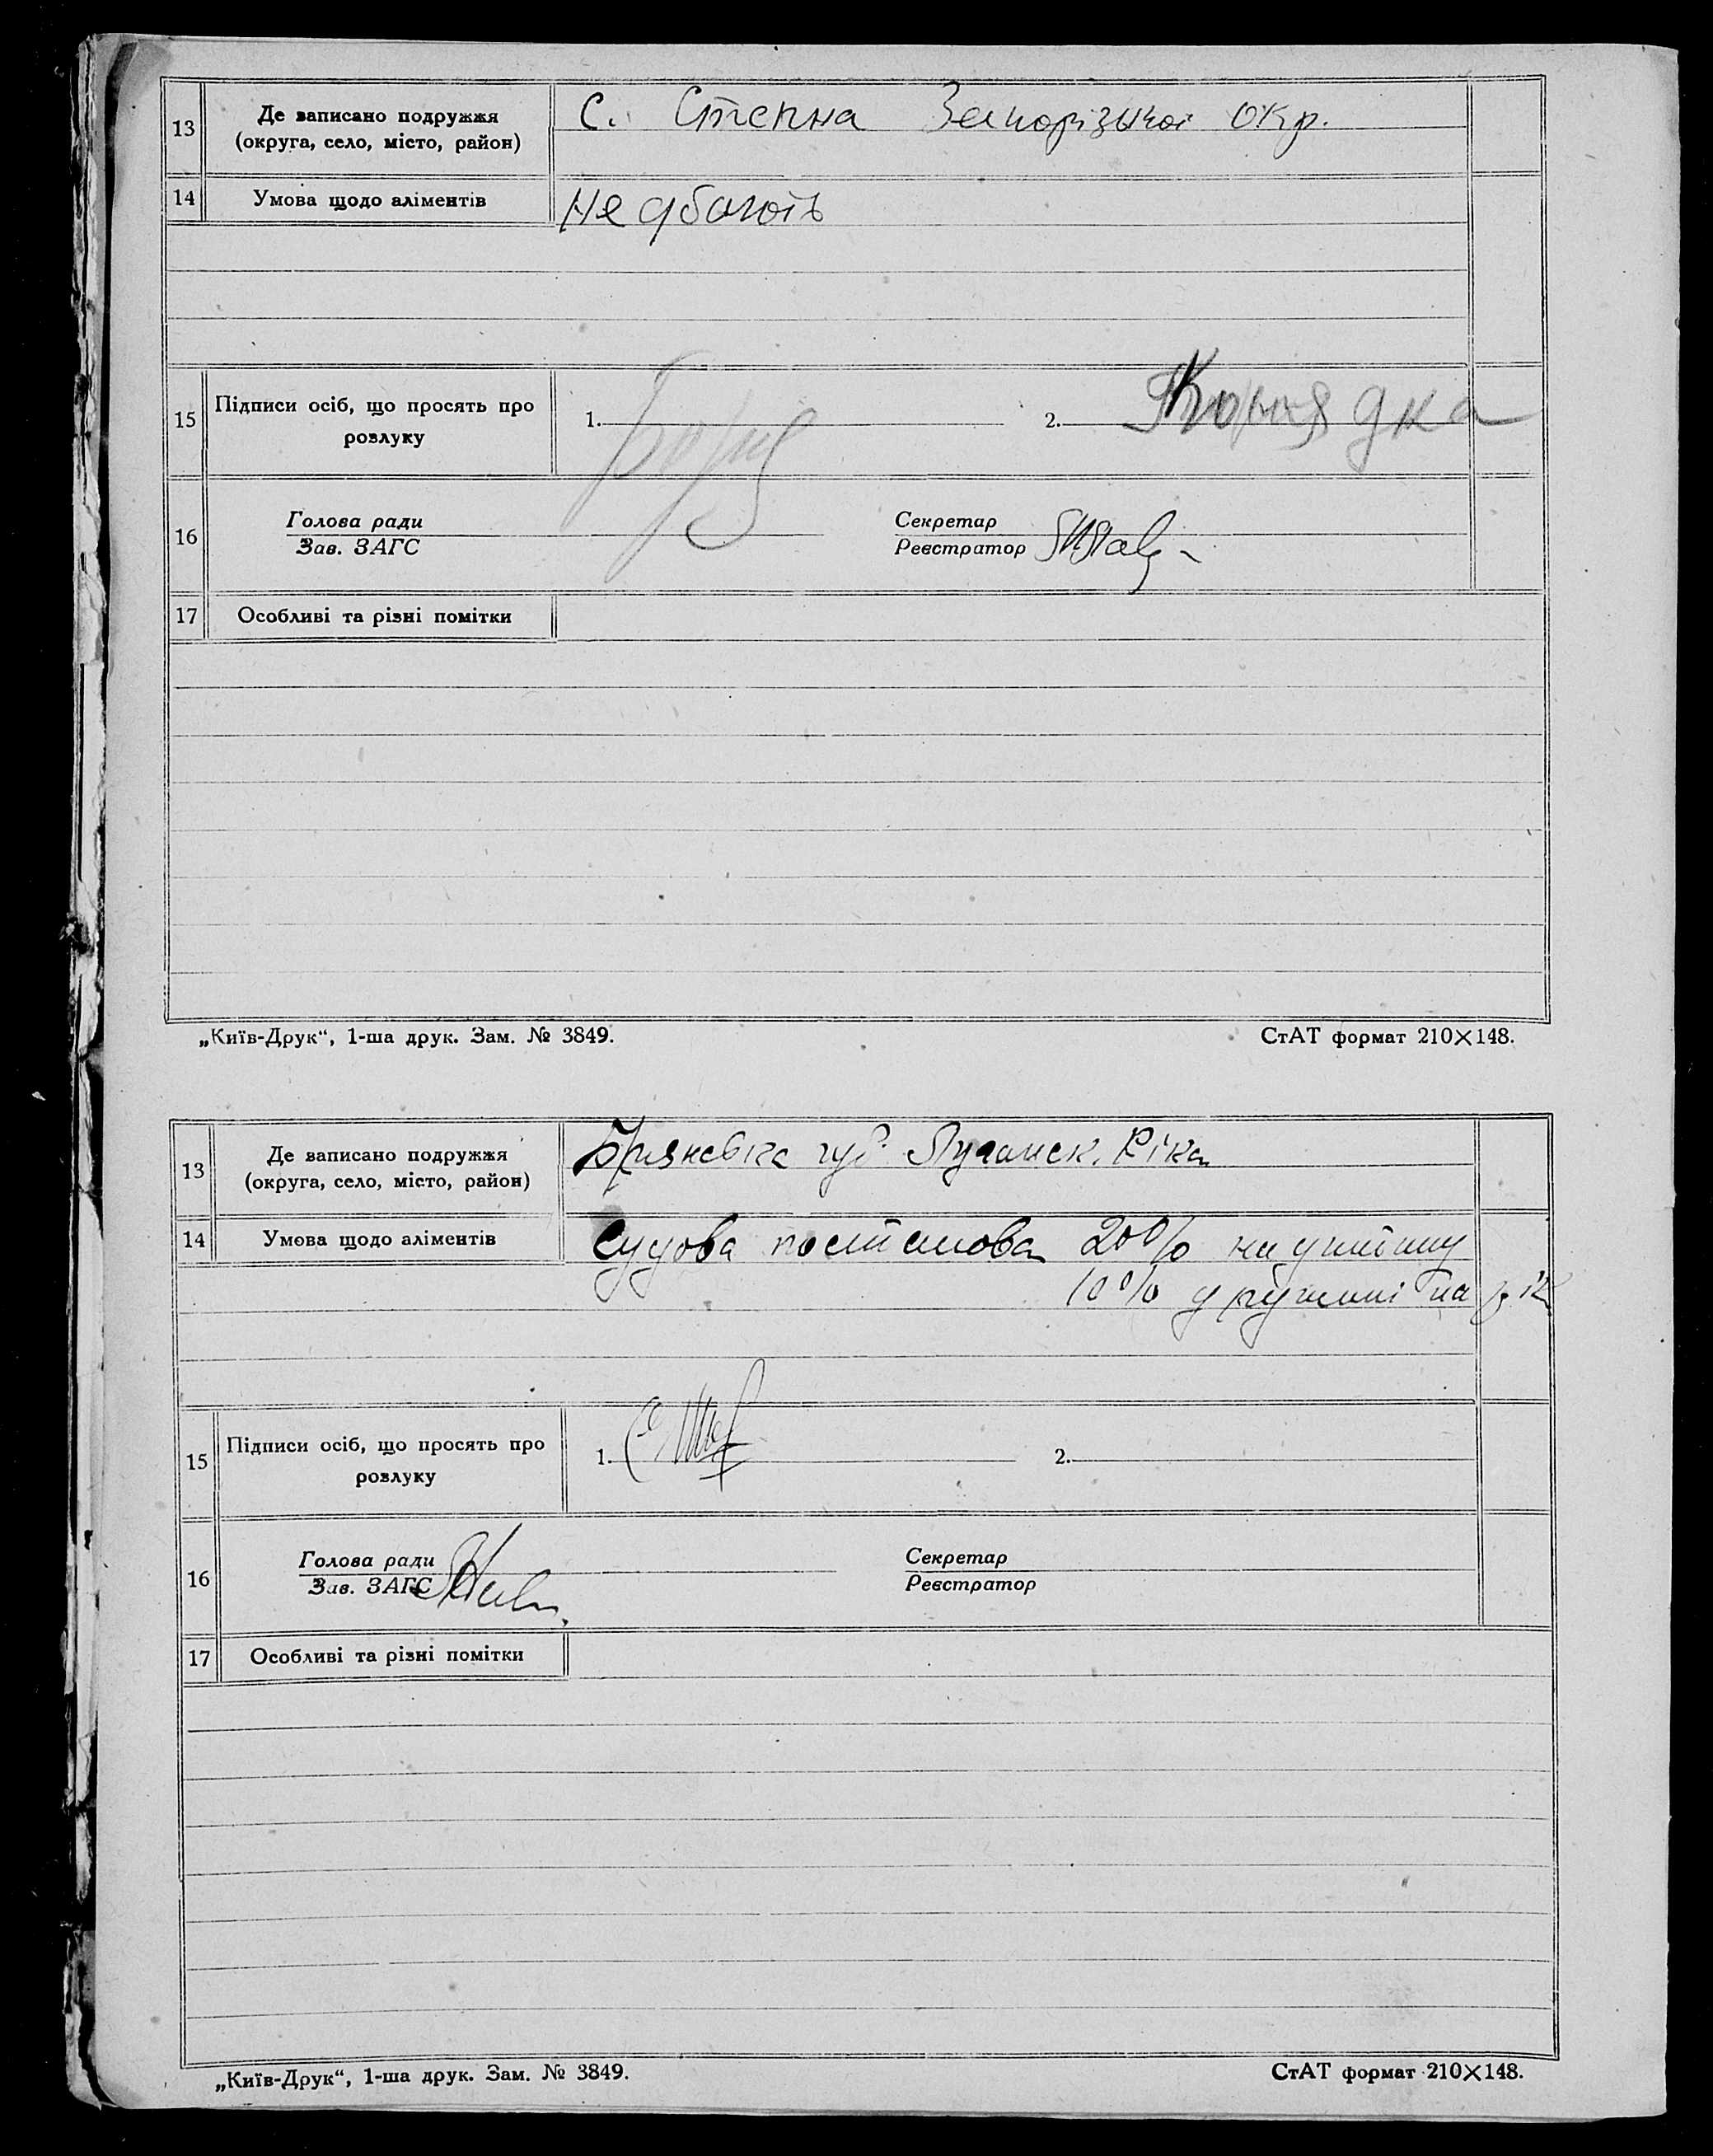 13 Де записано подружжя С. Степна Запорізької окр.
(округа, село, місто, район)
14 Умова щодо аліментів Не дбають
15 Підписи осіб, що просять про 1. 2.
розлуку
16 Голова ради Секретар
Зав. ЗАГС Реєстратор
17 Особливі та різні помітки
„Київ-Друк“, 1-ша друк. Зам. № 3849. СтАТ формат 210×148.
13 Де записано подружжя
(округа, село, місто, район)
14 Умова щодо аліментів Судова постанова 20% на дитину
10% дружині на рік
15 Підписи осіб, що просять про 1. 2.
розлуку
16 Голова ради Секретар
Зав. ЗАГС Реєстратор
17 Особливі та різні помітки
„Київ-Друк“, 1-ша друк. Зам. № 3849. СтАТ формат 210×148.